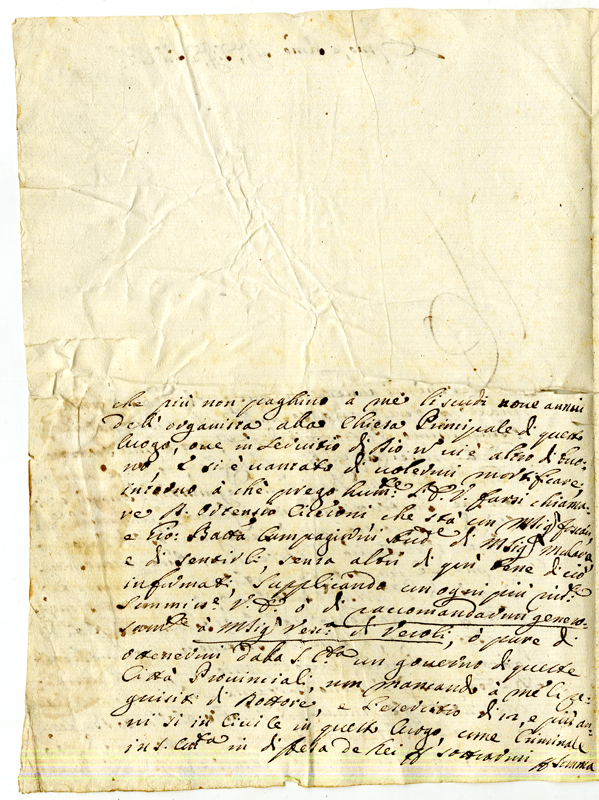 che più non paghino à me li scudi nove annui
dell'organista alla Chiesa Principale di questo
luogo, ove in servitio di Dio n' vi è altro di buo-
no, e si è vantato di volermi mortificare,
intorno à che prego hum.te V.S. farsi chiama-
re S. Ortensio Ciccioni che stà con Msig.
e Gio: Batta Campagioni stud.e di Msig.
e di sentirli, senza altri di più bene di ciò
informati, supplicando con ogni più
V.S. ò di raccomandarmi genero-
sam.te à Msig. Ven. di Vecoli, ò pure di
ottenermi dalla S. C.ta un governo di queste
Città Provinciali, non mancando à me li re-
quisiti di Dottore, e l'esercitio di 12, e più an-
ni sì in Civile in questo luogo, come Criminale
in S. in difesa de Rei